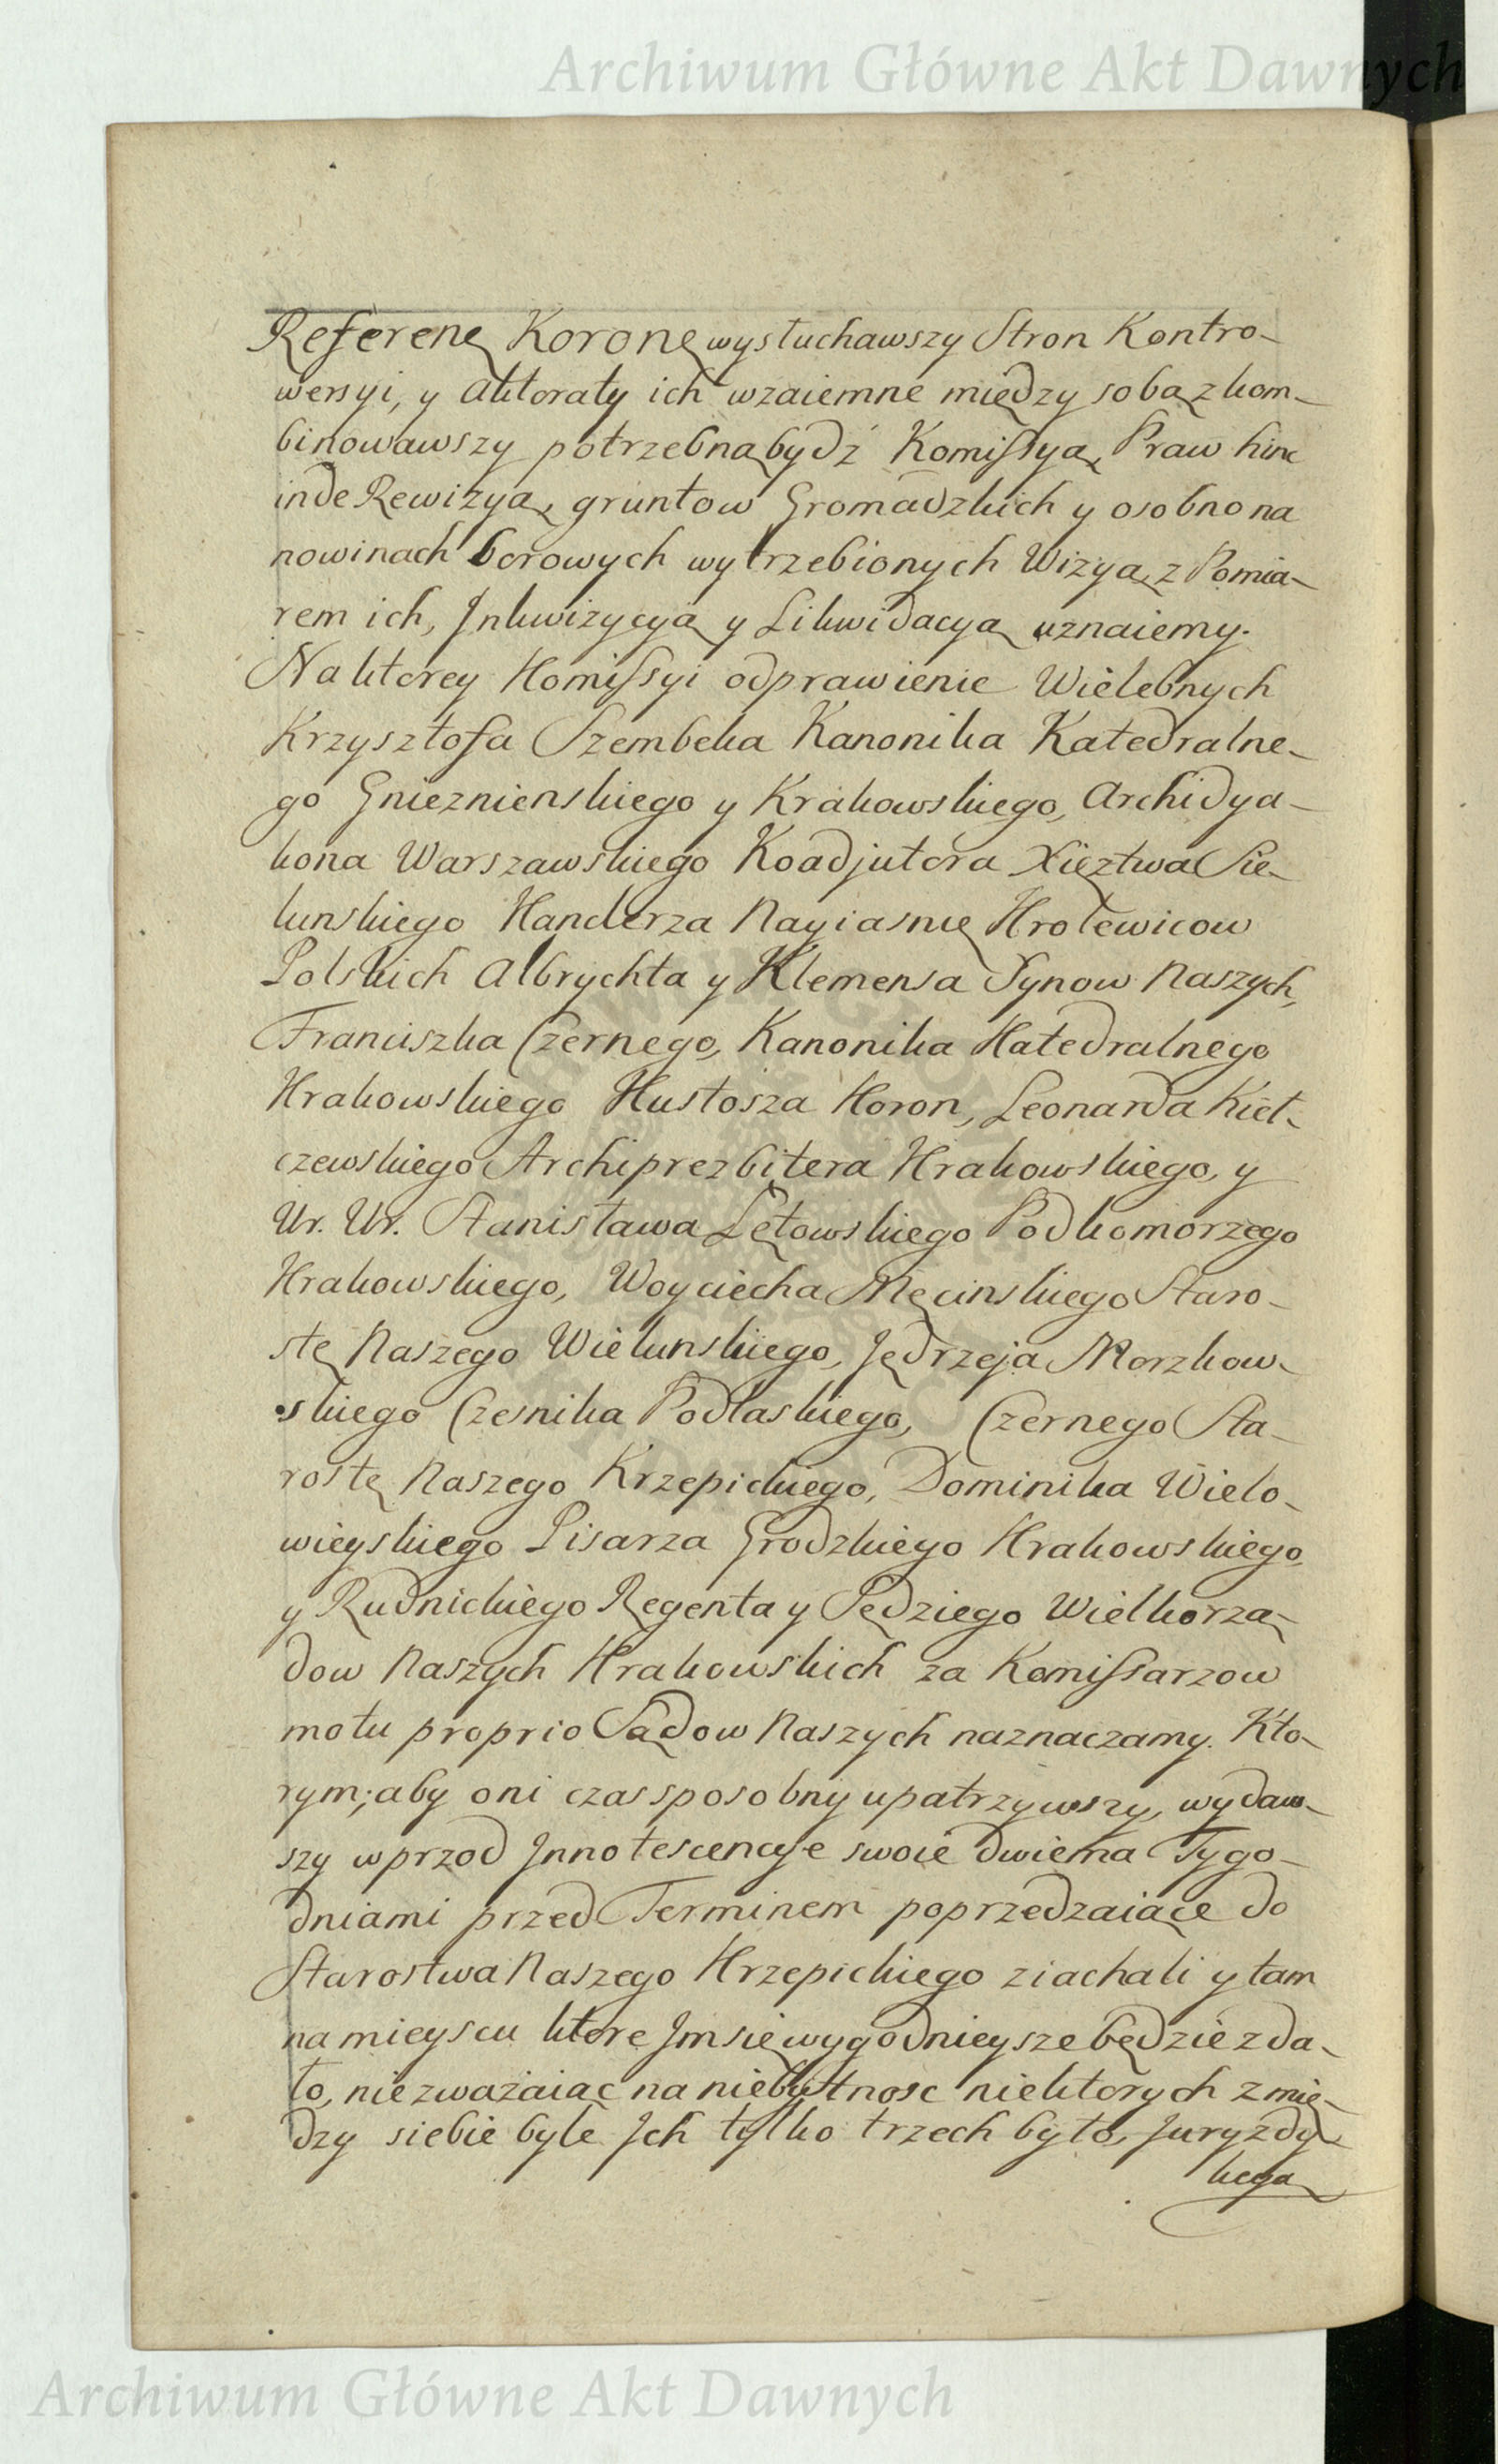 Archiwum Główne Akt Dawnych
Referenę Koronę wysłuchawszy Stron Kontro-
wersyi, y aktoraty ich wzaiemne między sobą zkom-
binowawszy potrzebną bydź Komissyą, Praw hinc
inde Rewizyą, gruntow Gromadzkich y osobno na
nowinach borowych wytrzebionych Wizyą, z Pomia-
rem ich, Inkwizycyą y Likwidacyą uznaiemy.
Na ktorey Komissyi odprawienie Wielebnych
Krzysztofa Szembeka Kanonika Katedralne-
go Gnieznienskiego y Krakowskiego, Archidya-
kona Warszawskiego Koadjutora Xięztwa Sie-
lunskiego Kanclerza Nayiasnię Krolewicow
Polskich Albrychta y Klemensa Synow Naszych,
Franciszka Czernego, Kanonika Katedralnego
Krakowskiego Kustosza Koron, Leonarda Kieł-
czewskiego Archiprezbitera Krakowskiego, y
Ur. Ur. Stanisława Lętowskiego Podkomorzego
Krakowskiego, Woyciecha Męcinskiego Staro-
stę Naszego Wielunskiego, Jędrzeja Morzkow-
skiego Czesnika Podlaskiego, Czernego Sta-
rostę Naszego Krzepickiego, Dominika Wielo-
wieyskiego Pisarza Grodzkiego Krakowskiego,
y Rudnickiego Regenta y Sędziego Wielkorzą-
dow Naszych Krakowskich za Komissarzow
motu proprio Sądow Naszych naznaczamy. Kto-
rym; aby oni czas sposobny upatrzywszy, wydaw-
szy wprzod Innotescencye swoie dwiema Tygo-
dniami przed Terminem poprzedzaiące do
Starostwa Naszego Krzepickiego ziachali y tam
na mieyscu ktore Im się wygodnieysze będzie zda-
ło, nie zważaiąc na niebytnosc niektorych z mię-
dzy siebie byle Ich tylko trzech było, Juryzdy-
kcyą
Archiwum Główne Akt Dawnych